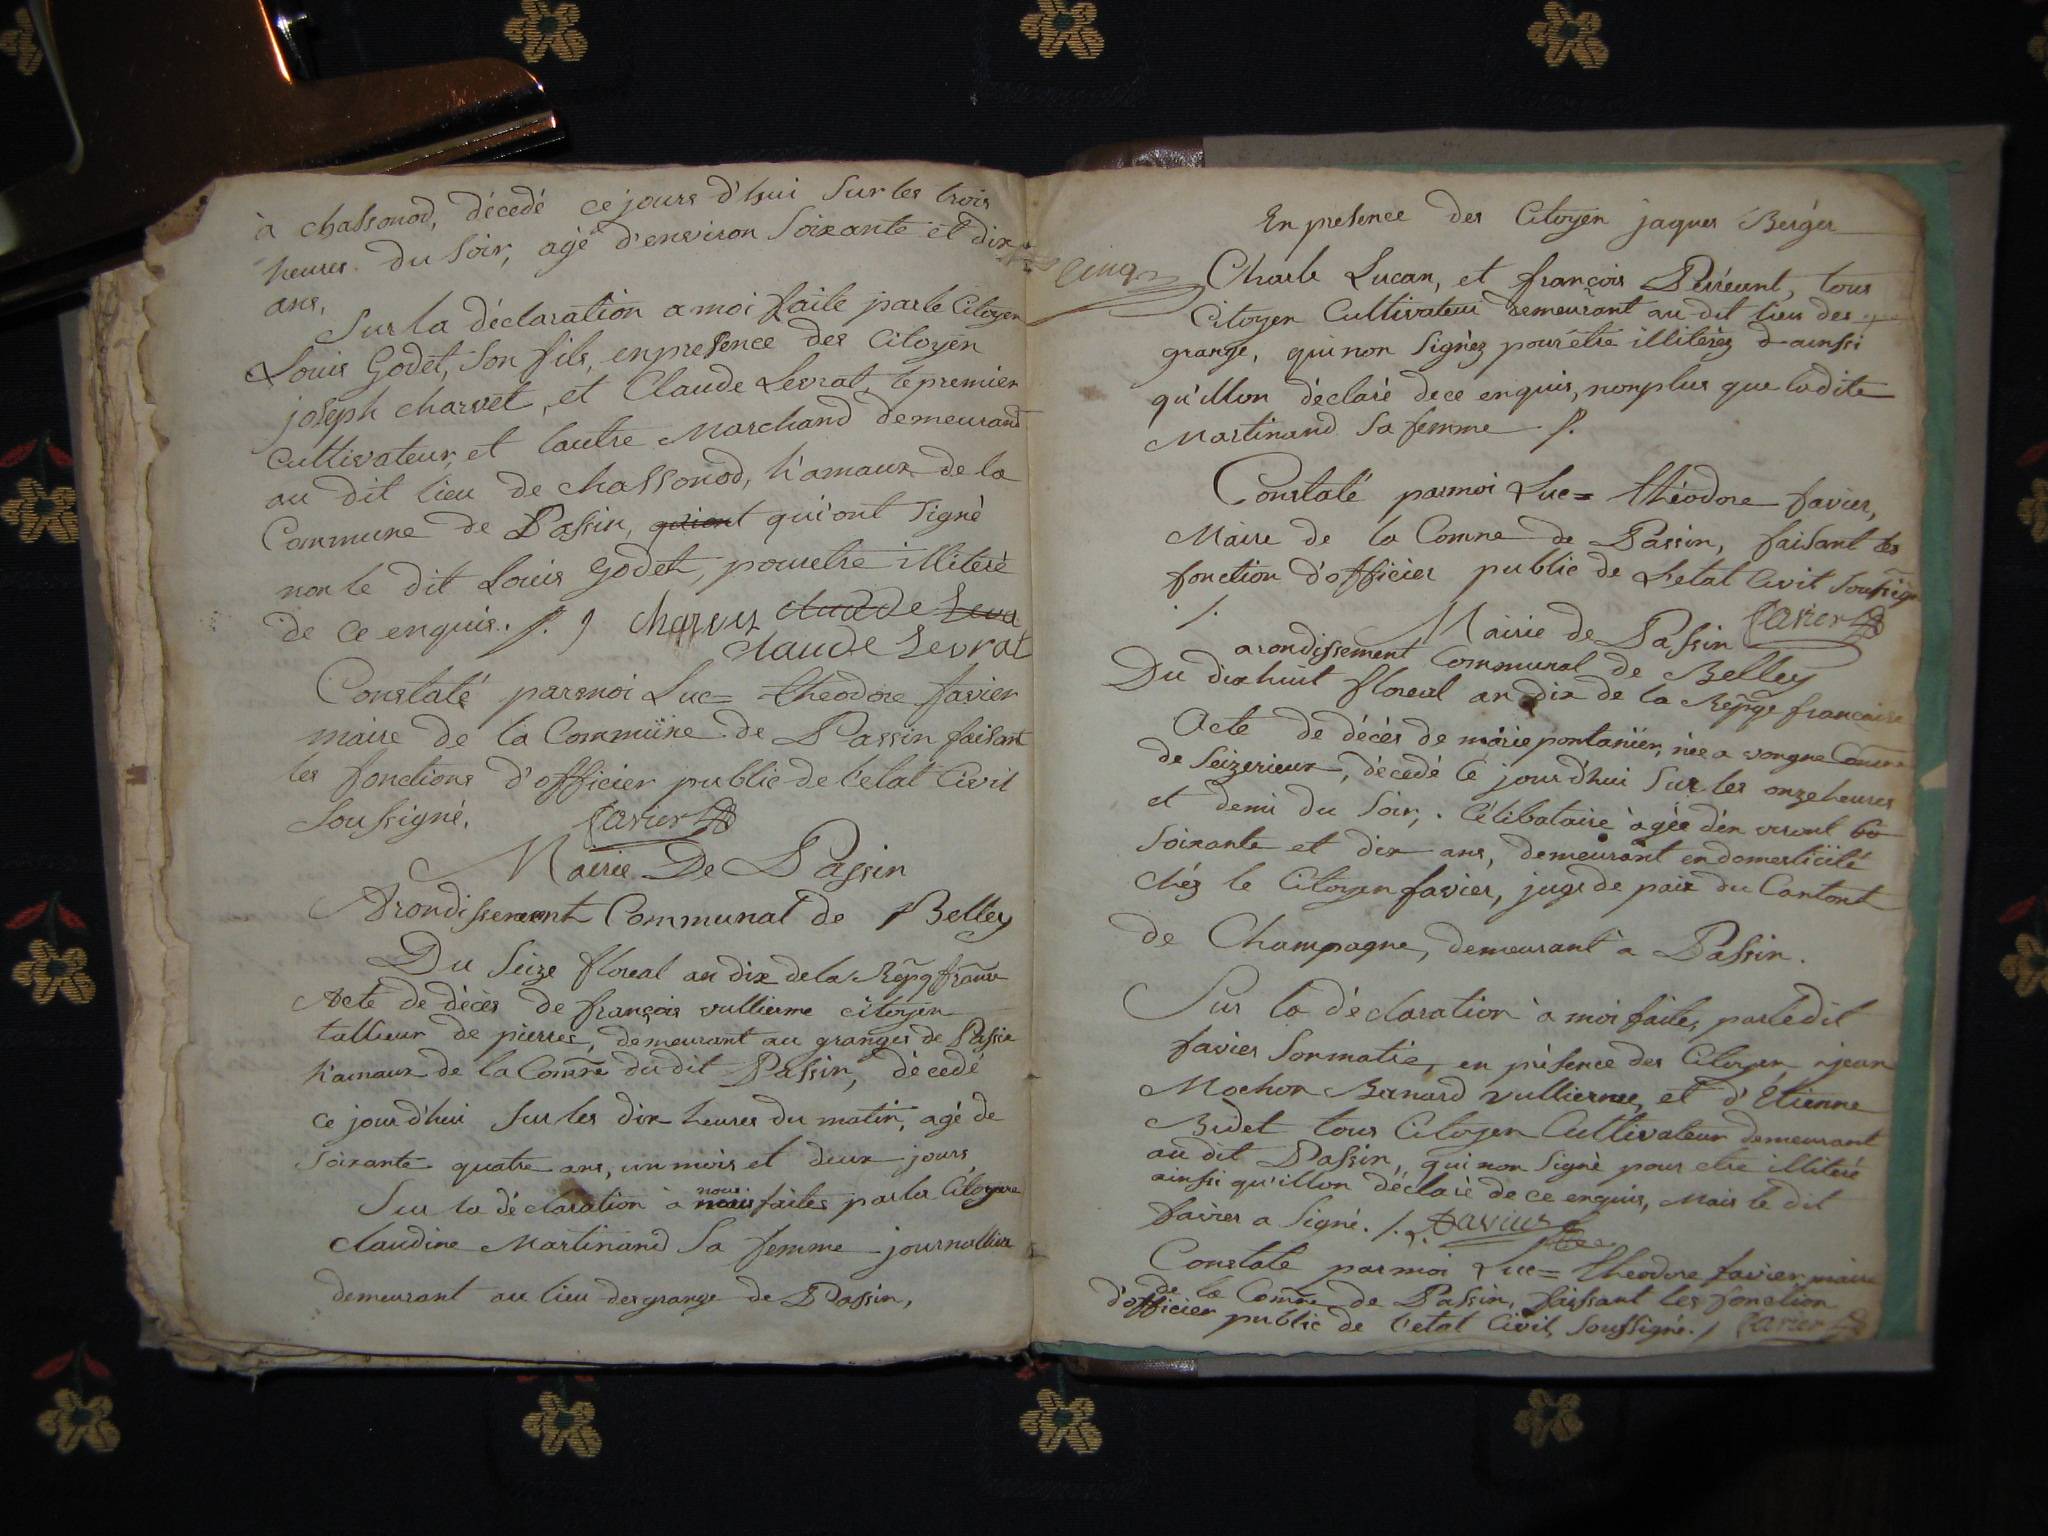 à chassonod, décedé ce jours d'hui sur les trois
heures du soir, agé d'environ soixante et dix
ans,
Sur la déclaration a moi faite par le Citoyen
Louis Godet, son fils, en presence des Citoyen
joseph charvet, et Claude Levrat, le premier
Cultivateur, et lautre Marchand demeurand
au dit lieu de chassonod, h'amaux de la
Commune de Passin, quiont qui'ont signé
non le dit Louis Godet, pour etre illiteré
de ce enquis. /. charvet claude Leva
claude Levrat
Constaté parmoi Luc= theodore favier
maire de la Commune de Passin faisant
les fonctions d'officier public de l'etat Civil
soussigné. favier
Mairie De Passin
Arondissement Communal de Belley
Du seize floreal an dix de la Repq franse
Acte de décès de françois vullierme citoyen
tallieur de pierres, demeurant au granges de Passin
h'amaux de la Comne dudit Passin, décedé
ce jourd'hui sur les dix heures du matin, agé de
soixante quatre ans, un mois et deux jours
Sur la déclaration à nous faites par la Citoyene
claudine Martinand sa femme journalliere
demeurant au lieu desgrange de Passin,
En presence des Citoyen jaques Berger
cinq
Charle Lucan, et françois Peireunt, tous
Citoyen Cultivateur demeurant au dit lieu des
grange, qui non signéz pour être illiteréz d ainssi
qu'illon déclaré de ce enquis, nonplus que ladite
Martinand sa femme /.
Constaté parmoi Luc= théodore favier,
Maire de la Comne de Passin, faisant les
fonction d'officier public de L'etat Civil soussigné
/. favier
Mairie de Passin
arondissement Communal de Belley
Du dix huit floreal an dix de la Repqe francaise
Acte de décès de marie pontanier, née a vongne Comne
de Seizerieux, décedé ce jourd'hui sur les onze heures
et demi du soir, . Célibataire agée d'en viront
soixante et dix ans, demeurant en domesticité
chéz le Citoyen favier, juge de paix du Cantont
de Champagne, demeurant a Passin.
Sur la déclaration à moi faites, par le dit
favier son matie, en présence des Citoyen, jean
Mochon Bernard vullierme, et d'Etienne
Bidet tous Citoyen Cultivateur demeurant
au dit Passin, qui non signé pour etre illiteré
ainssi qu'illon déclaré de ce enquis, Mais le dit
favier a signé. /. favier
Constate par moi Luc= theodore favier maire
de la Comne de Passin, faissant les fonction
d'officier public de l'etat Civil soussigné. / favier